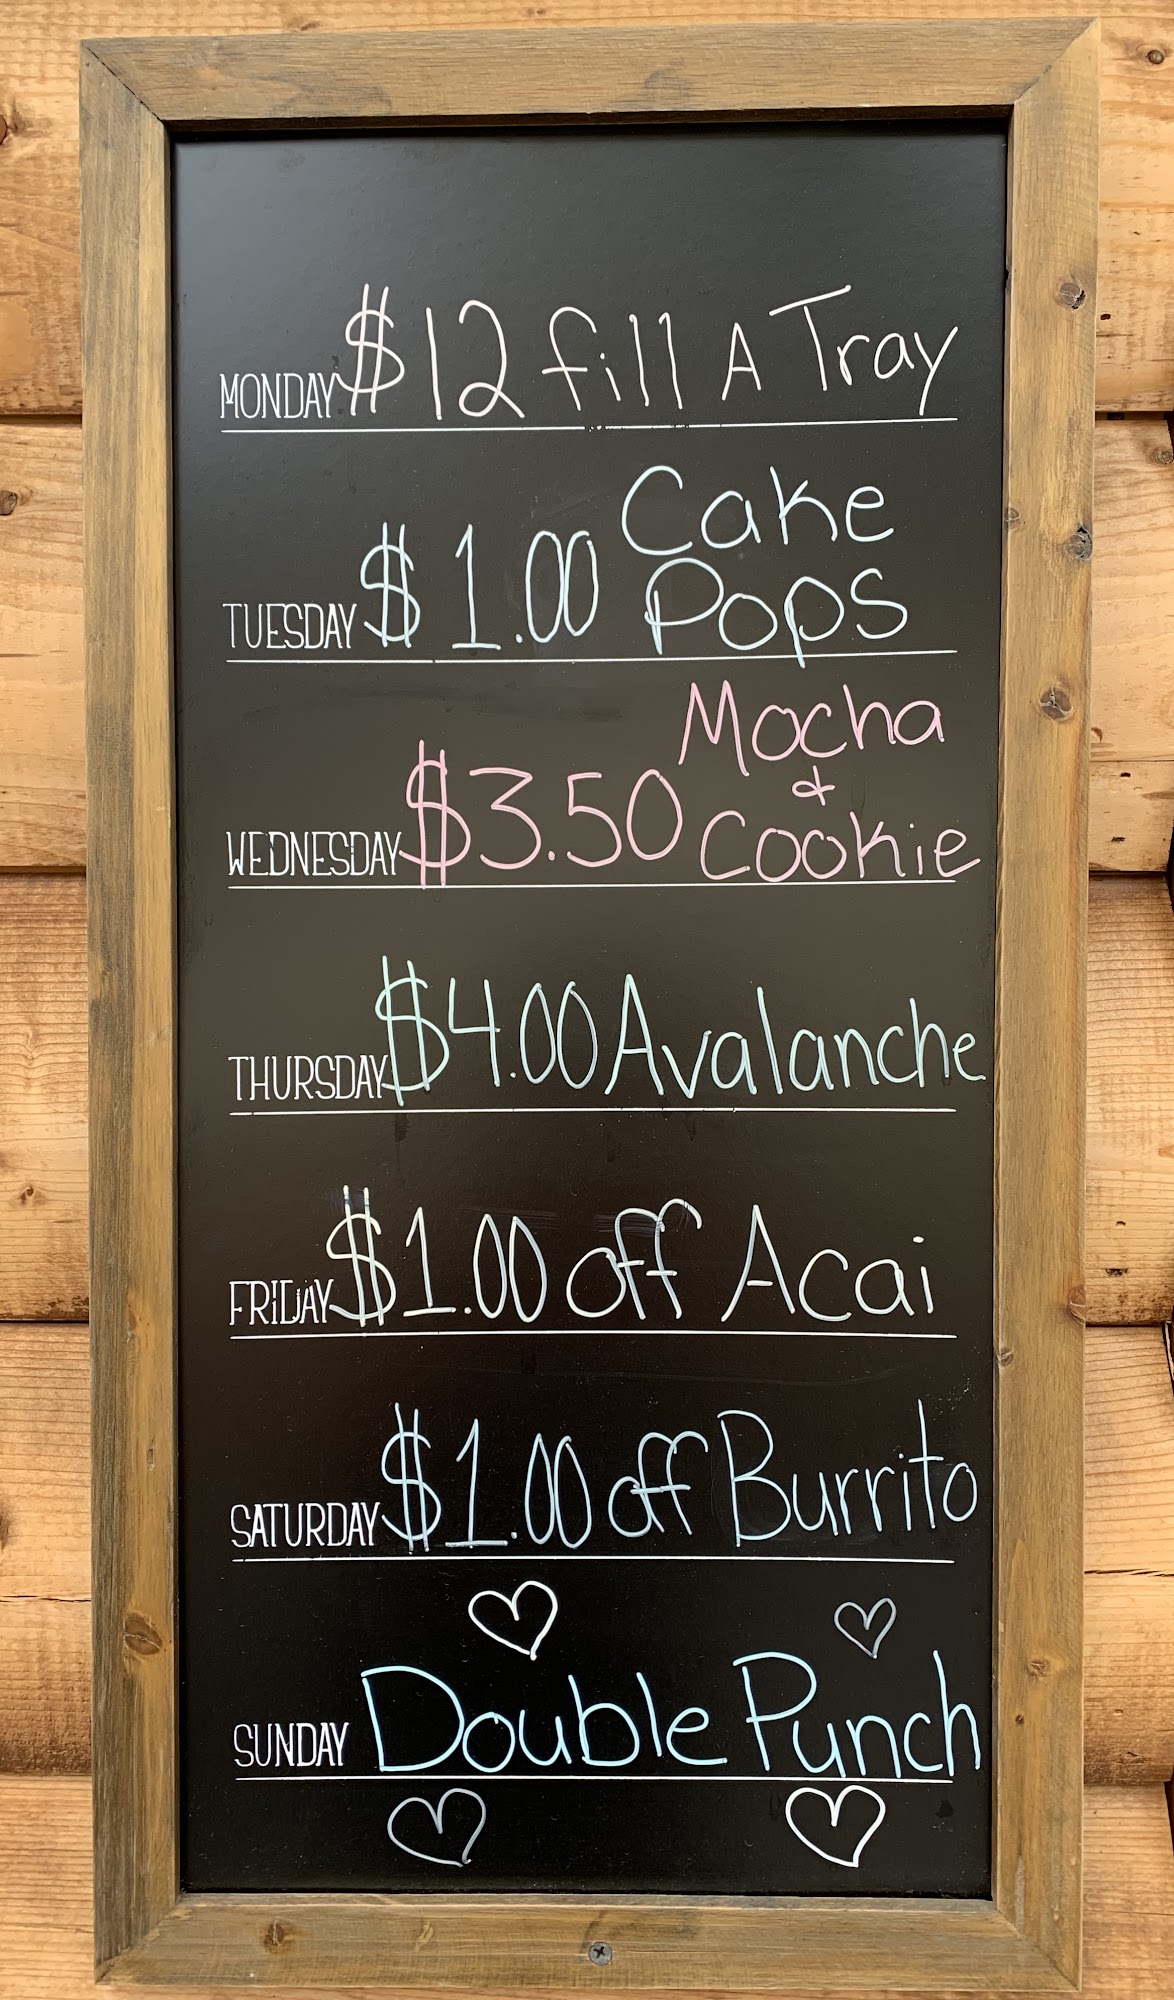 MONDAY $12 fill A Tray
Cake
TUESDAY $1.00 Pops
Mocha
&
WEDNESDAY $3.50 Cookie
THURSDAY $4.00 Avalanche
FRIDAY $1.00 off Acai
SATURDAY $1.00 off Burrito
SUNDAY Double Punch